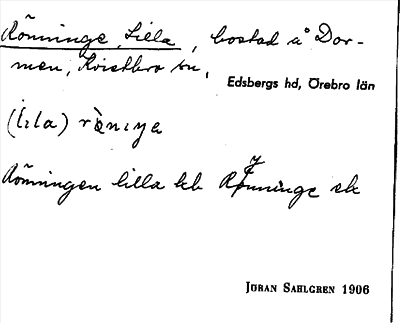 Rönninge, Lilla, bostad å Dor-
men, Kvistbro sn,
Edsbergs hd, Örebro län
(lıla) rönıŋe
Rönningen lilla kb Rönninge
JÖRAN SAHLGREN 1906